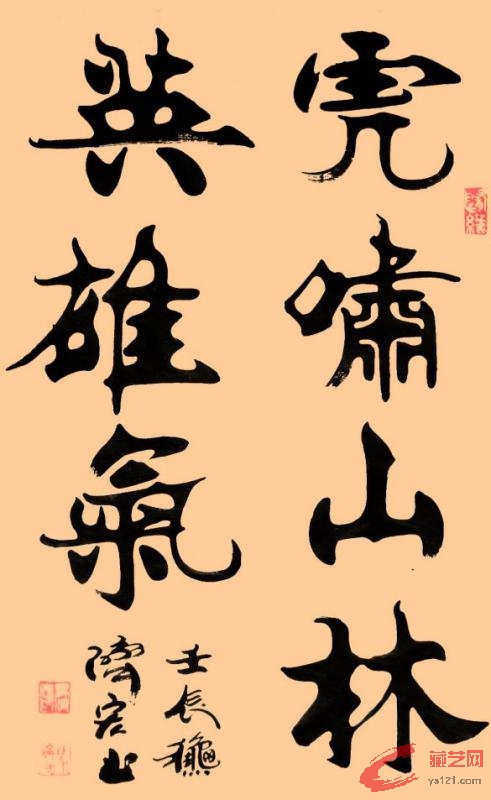 虎嘯山林
英雄氣
壬辰龝
藏艺网
ys121.com